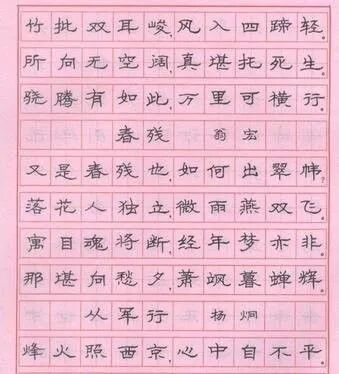 竹批双耳峻,风入四蹄轻。
所向无空阔,真堪托死生。
骁腾有如此,万里可横行。
春残 翁宏
又是春残也,如何出翠帏?
落花人独立,微雨燕双飞。
寓目魂将断,经年梦亦非。
那堪向愁夕,萧飒暮蝉辉。
从军行 杨炯
烽火照西京,心中自不平。